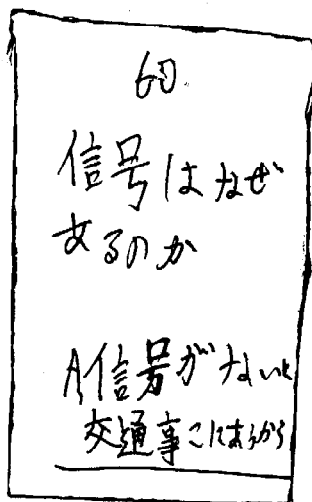 信号はなぜ
あるのか
A,信号がないと
交通事こにあうから